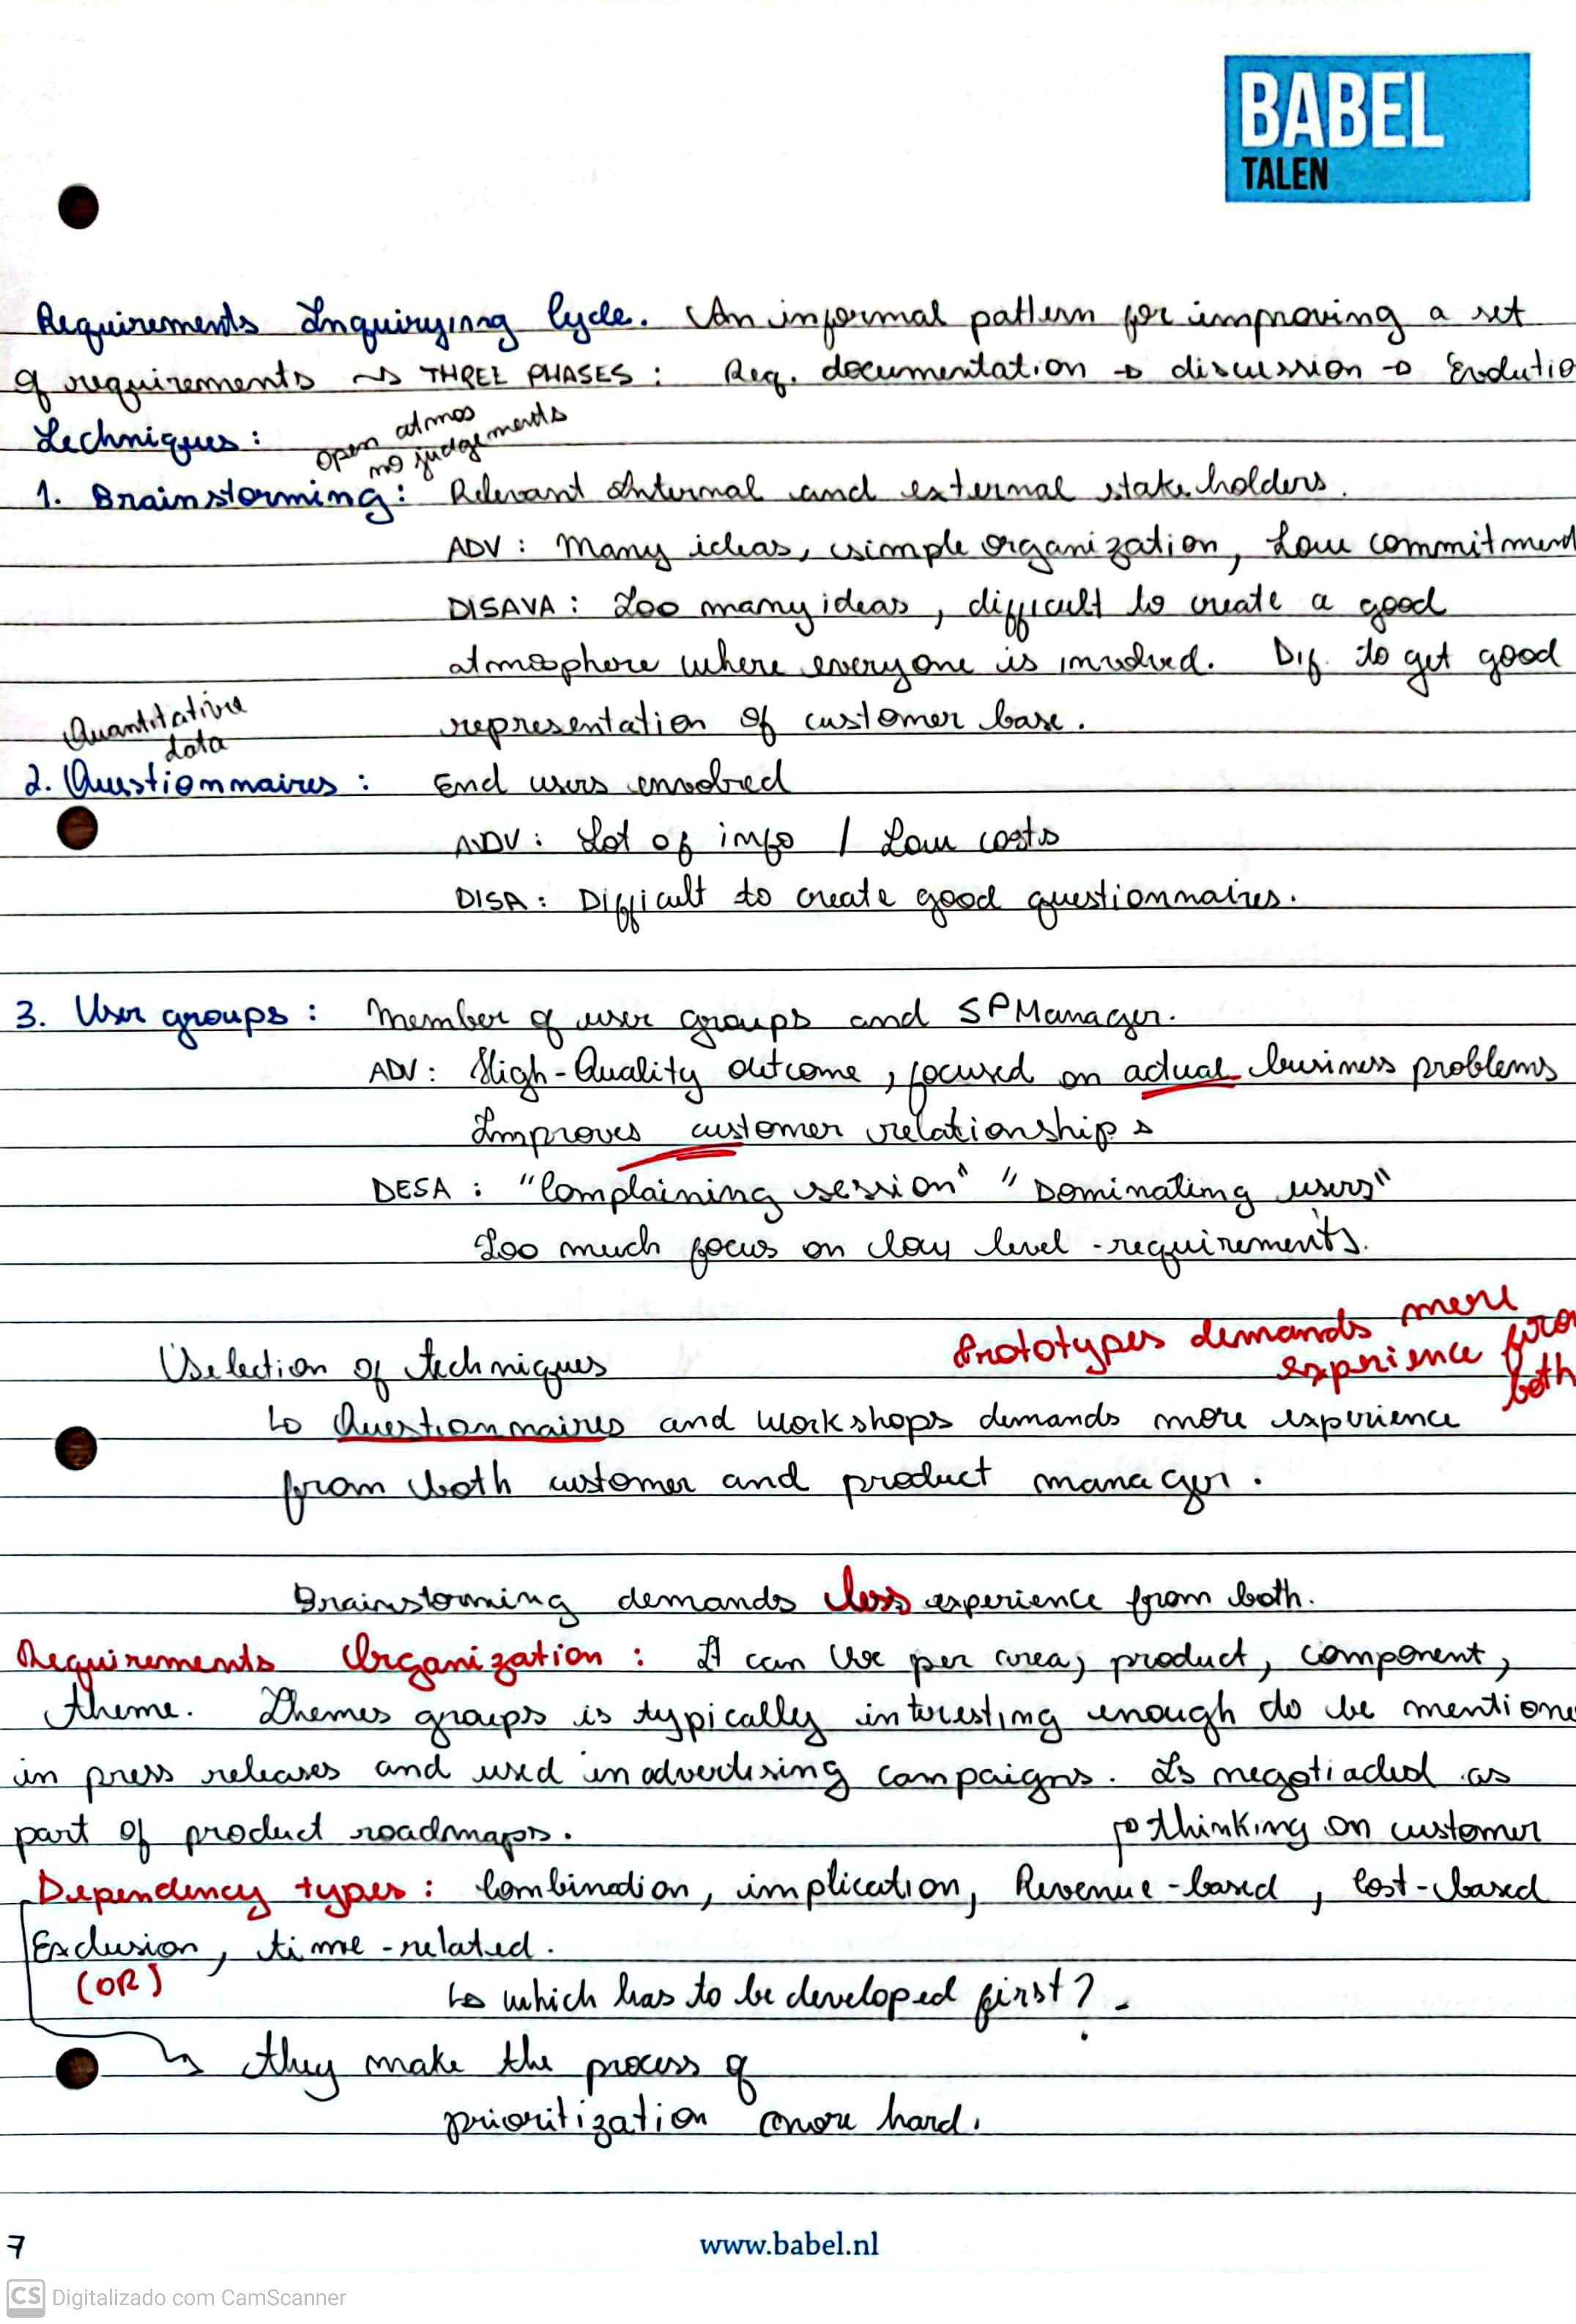 BABEL
TALEN
Requirements Inquirying Cycle. An informal pattern for improving a set
of requirements ~> THREE PHASES : Req. documentation -> discussion -> Evolutio
Techniques :
open atmos
no judgements
1. Brainstorming : Relevant internal and external stakeholders.
ADV : Many ideas, simple organization, Low commitment
DISAVA : Too many ideas, difficult to create a good
atmosphere where everyone is involved. Dif. to get good
representation of customer base.
Quantitative
data
2. Questionnaires : End users envolved
ADV : Lot of info / Low costs
DISA : Difficult to create good questionnaires.
3. User groups : Member of user groups and SPManager.
ADV : High-Quality outcome, focused on actual business problems
Improves customer relationships
DESA : "Complaining session" "Dominating users"
Too much focus on low level-requirements.
Prototypes demands more
experience fro
both
Selection of techniques
↳ Questionnaires and workshops demands more experience
from both customer and product manager.
Brainstorming demands less experience from both.
Requirements Organization : It can be per area, product, component,
theme. Themes groups is typically interesting enough do be mentione
in press releases and used in advertising campaigns. Is negotiated as
part of product roadmaps.
-> thinking on customer
Dependency types : Combination, implication, Revenue-based, Cost-based
Exclusion, time-related.
(OR)
↳ which has to be developed first?
-> they make the process of
prioritization more hard.
7
www.babel.nl
CS Digitalizado com CamScanner